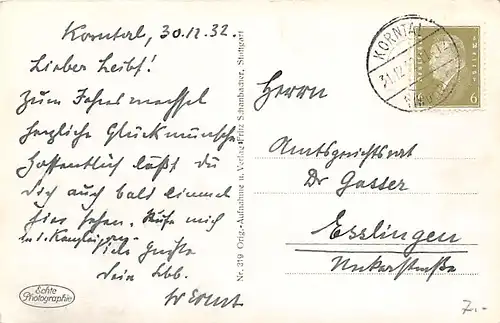 Korntal, 30.12.32.
Lieber
Zum Jahreswechsel
herzliche Glückwünsche
Hoffentlich läßt du
dich auch bald einmal
hier sehen. Rufe mich
Viele Grüße
Dein
Ernst
Echte
Photographie
Nr. 319 Orig.-Aufnahme u. Verlag Fritz Schanbacher, Stuttgart
KORNTAL
31.12
6
Herrn
Amtsgerichtsrat
Dr Gasser
Esslingen
Neckarstraße
7.-